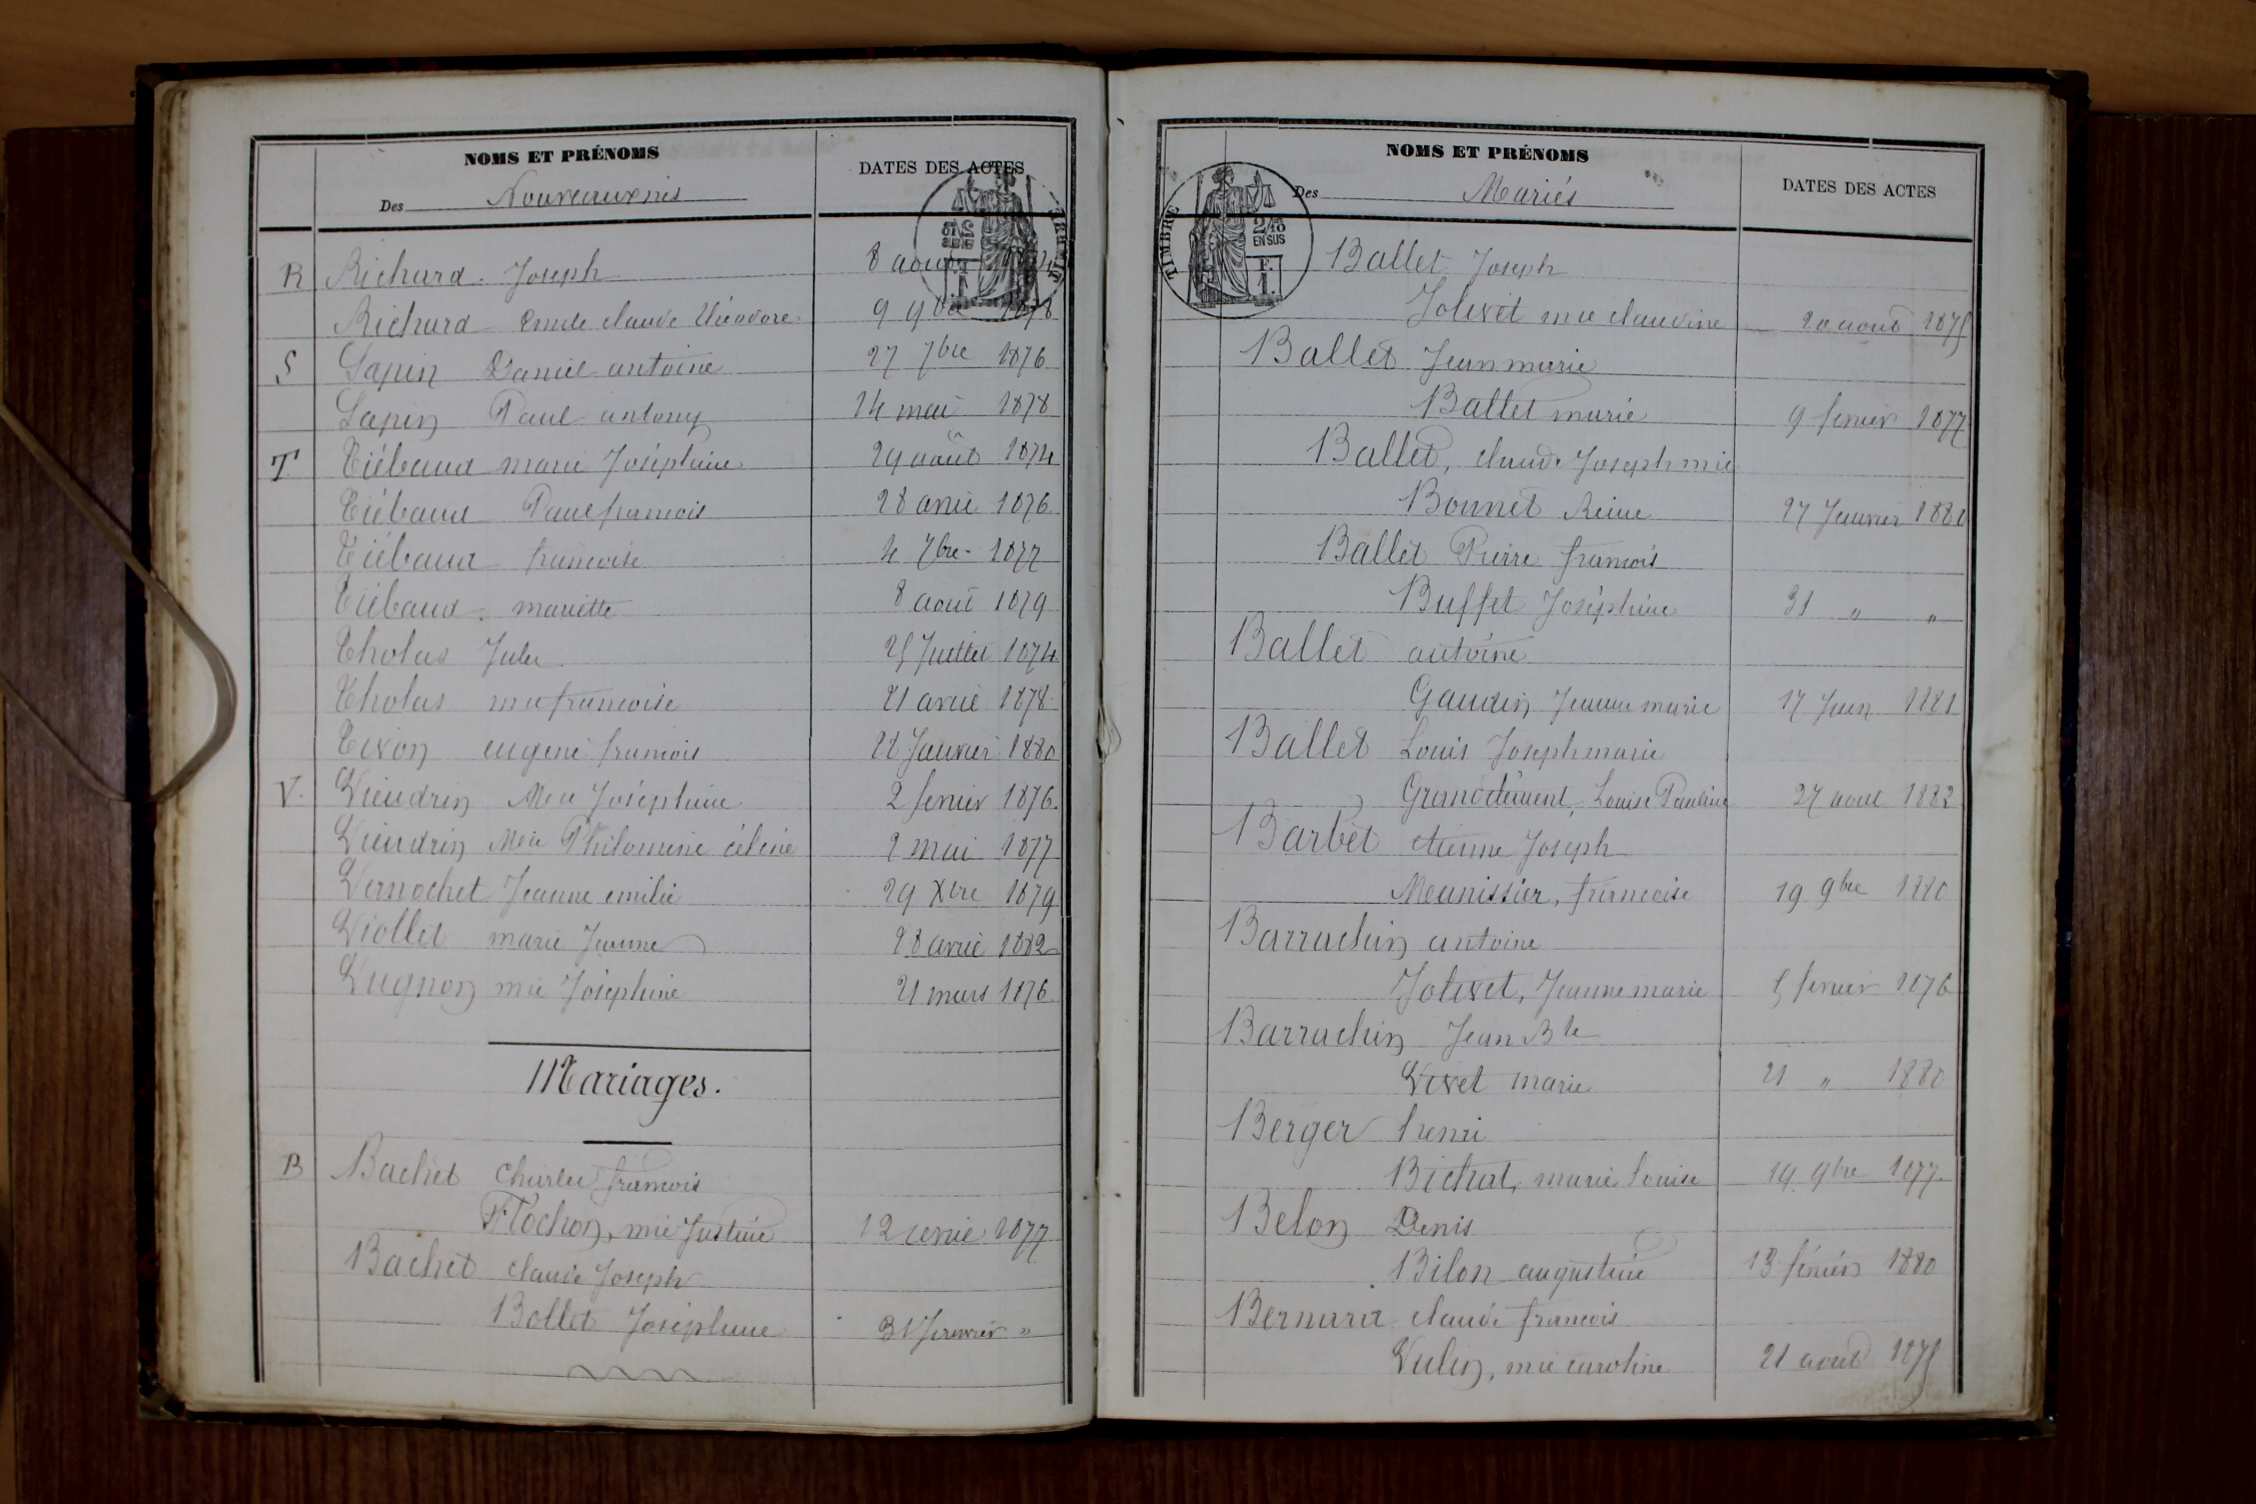 NOMS ET PRÉNOMS
DATES DES ACTES
Des Nouveaux nés
R Richard Joseph 8 août
Richard Emile claude Théodore 9 9bre 1878
S Sapin Daniel antoine 27 7bre 1876
Sapin Paul antony 14 mai 1878
T Tiébaud marie Joséphine 29 août 1874
Tiébaud Paul francois 28 avril 1876
Tiébaud francoise 4 7bre 1877
Tiébaud mariette 8 août 1879
Tholas Jules 25 Juillet 1874
Tholas mie francoise 21 avril 1878
Tixon eugene francois 28 Janvier 1880
V. Vieudrin Mie Joséphine 2 fevrier 1876.
Vieudrin Mie Philomene célinie 2 mai 1877
Vernochet Jeanne emilie 29 Xbre 1879
Viollet marie Jeanne 28 avril 1882
Vugnon mie Joséphine 21 mars 1876
Mariages.
B Bachet Charles francois
Flochon, mie Justine 12 1877
Bachet claude Joseph
Bollet Joséphine 31 Janvier "
NOMS ET PRÉNOMS
DATES DES ACTES
Des Mariés
TIMBRE
2/10
EN SUS
F.
1.
Ballet Joseph
Jolivet mie claudine 20 août 1875
Ballet Jean marie
Ballet marie 9 fevrier 1877
Ballet, claude Joseph mie
Bonnet Reine 27 Janvier 1880
Ballet Pierre francois
Buffet Joséphine 31 " "
Ballet antoine
Gaudin Jeanne marie 17 Juin 1881
Ballet Louis Joseph marie
Grandclément, Louise Pauline 27 aout 1882
Barbet etienne Joseph
Meunissier, francoise 19 9bre 1880
Barrachin antoine
Jolivet, Jeanne marie 5 fevrier 1876
Barrachin Jean Bte
Vivet marie 21 " 1880
Berger henri
Bichat, marie Louise 19 9bre 1877.
Belon Denis
Bilon augustine 13 février 1880
Bernard claude francois
Vulin, mie caroline 21 août 1875